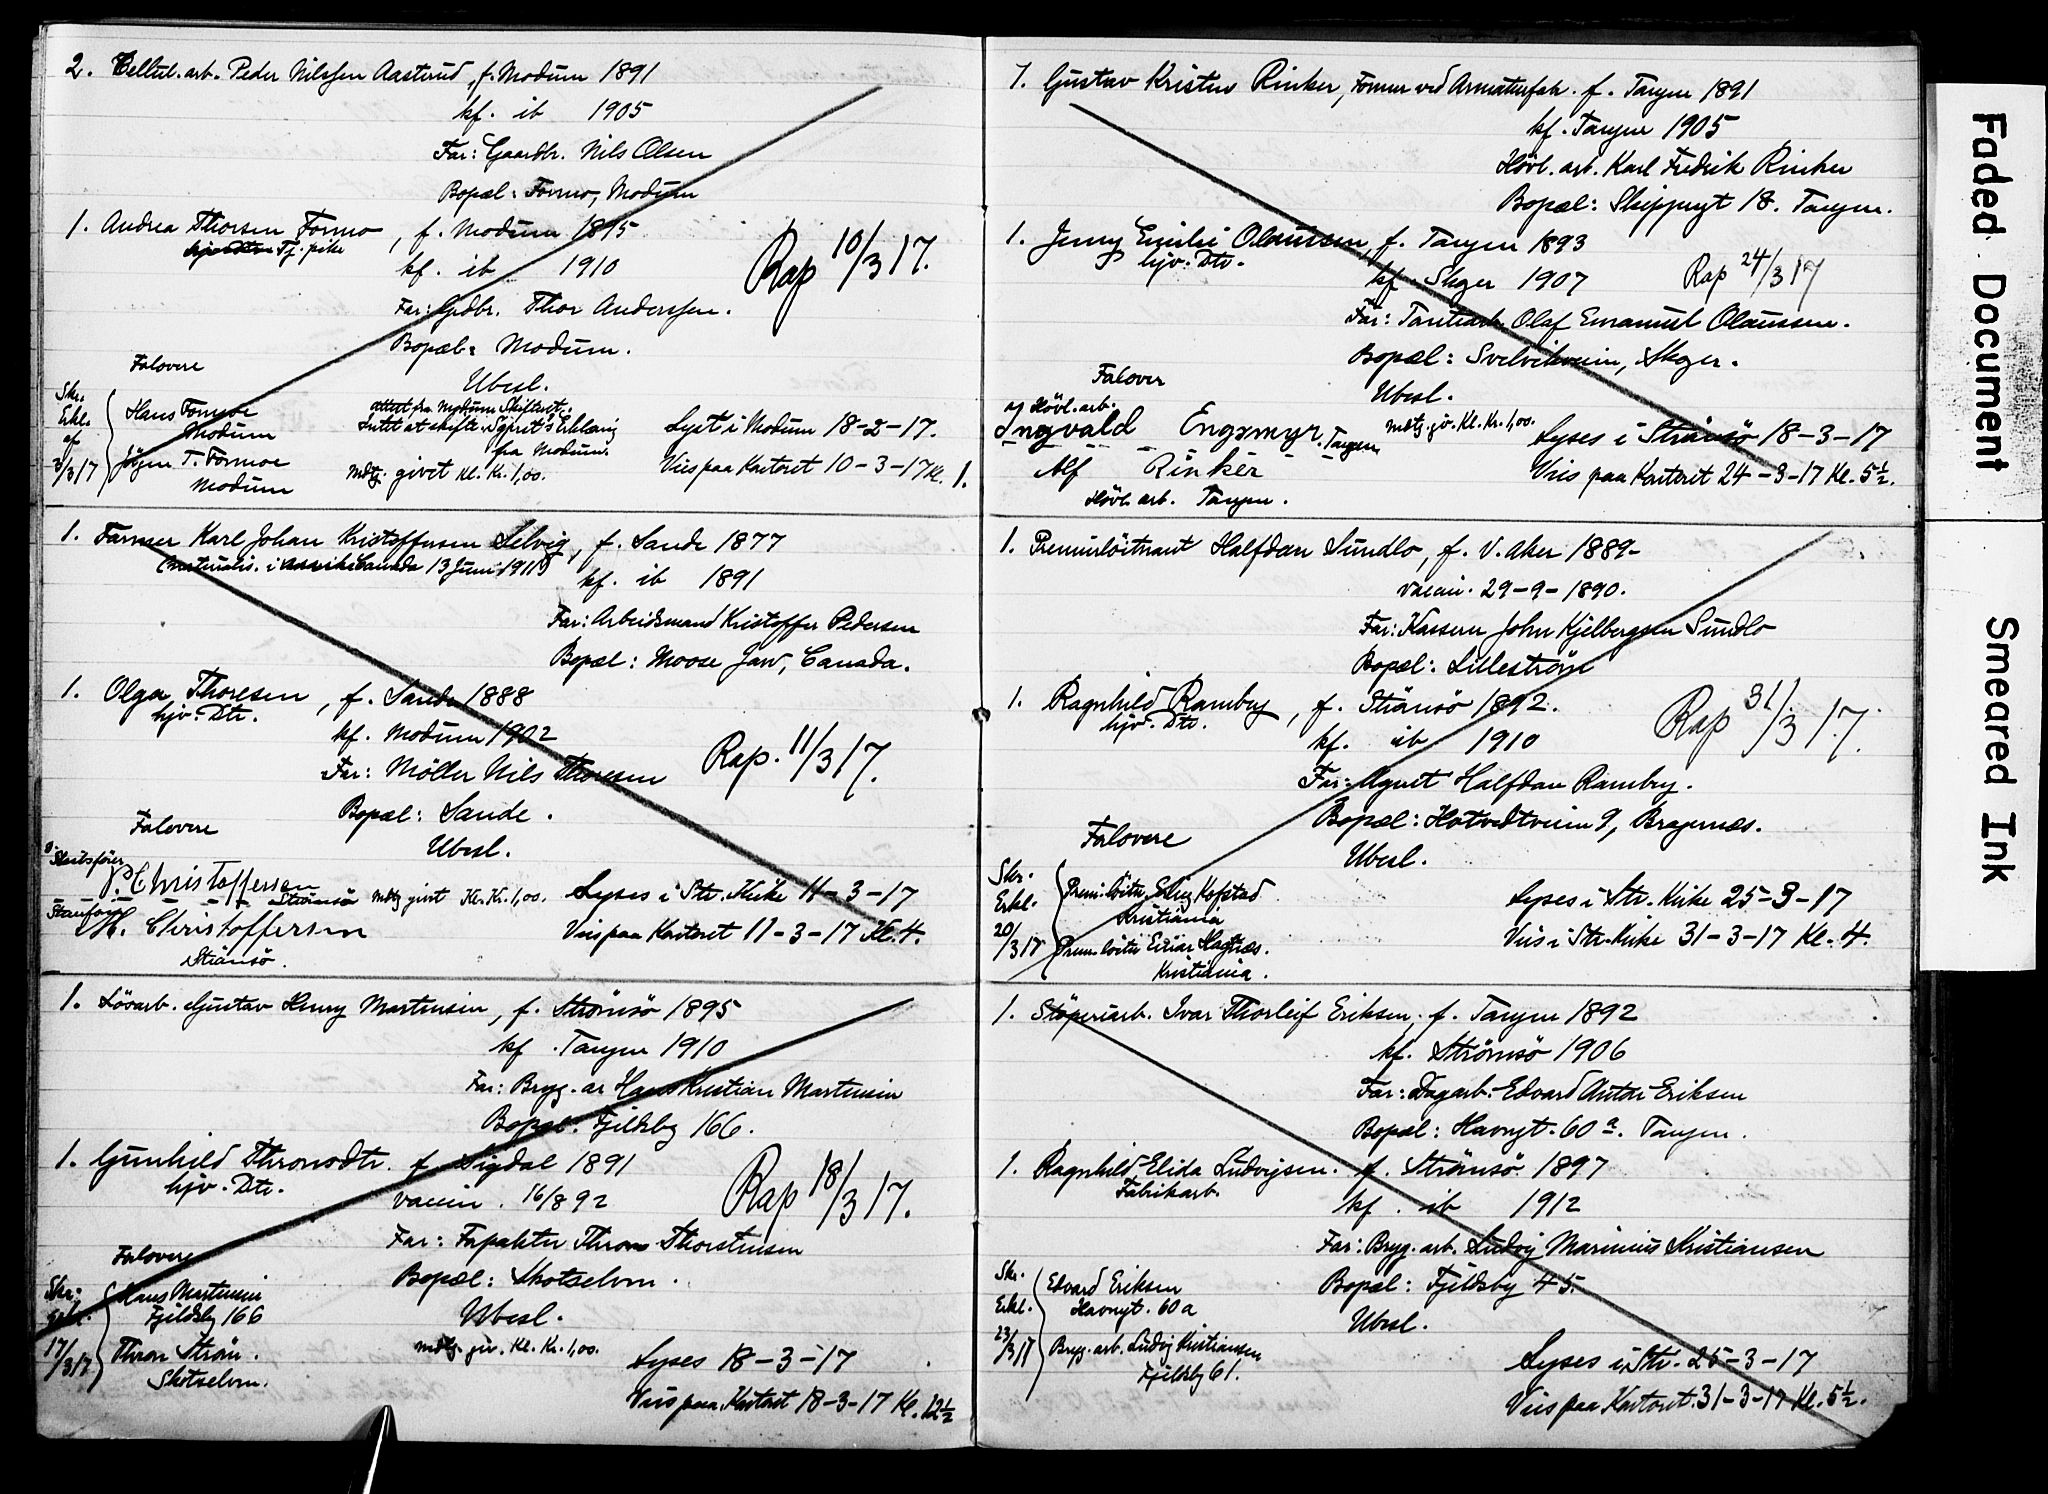 2. Cellul. arb. Peder Nilssen Aastrud, f. Modum 1891
kf. ib 1905
Far: Gaardbr. Nils Olsen
Bopæl: Formo, Modum
1. Andrea Thorsen Formo, f. Modum 1895
Tj. pike
kf. ib 1910
Rap 10/3 17.
Far: Gdbr. Thor Anderssen.
Bopæl: Modum.
Falovere
Ubesl.
Skr. Erkl. af 3/3 17
Hans Formoe
Modum
Jörgen T. Formoe
Modum
attest fra Modum Skifteret.
Intet at skifte.
fra Modum.
Mdtg. givet Kl. Kr. 1,00.
Lyst i Modum 18-2-17.
Vies paa Kontoret 10-3-17 Kl. 1.
1. Farmer Karl Johan Kristoffersen Selvig, f. Sande 1877
Canada 13 Juni 1911
kf. ib 1891
Far: Arbeidsmand Kristoffer Pedersen
Bopæl: Moose Jaw, Canada.
1. Olga Thoresen, f. Sande 1888
hjv. Dtr.
kf. Modum 1902
Far: Möller Nils Thoresen
Rap. 11/3 17.
Bopæl: Sande.
Falovere
Ubesl.
P. Christoffersen
Strömsö
Mdtg givet Kl. Kr. 1,00.
Lyses i Str. Kirke 11-3-17
H. Christoffersen
Strömsö.
Vies paa Kontoret 11-3-17 Kl. 4.
1. Lösarb. Gustav Henry Martinsen, f. Strömsö 1895
kf. Tangen 1910
Far: Bryg. ar Hans Kristian Martinsen
Bopæl: Fjeldsby 166.
1. Gunhild Thronsdtr. f. Sigdal 1891
hjv. Dtr.
vaccin. 16/8 92
Rap 18/3 17.
Far: Thron Thorstensen
Falovere
Bopæl: Skotselven.
Skr. Erkl. 17/3 17
Hans Martinsen
Fjeldsby 166
Ubesl.
Thron Ström.
Skotselven.
Mdtg. giv. Kl. Kr. 1,00.
Lyses 18-3-17
Vies paa Kontoret 18-3-17 Kl. 12½
1. Gustav Kristian Rinker, Former ved Armaturfabr. f. Tangen 1891
kf. Tangen 1905
Hövl. arb. Karl Fredrik Rinker
Bopæl: Skippergt 18. Tangen.
1. Jenny Emilie Olaussen, f. Tangen 1893
hjv. Dtr.
kf Skger 1907
Rap 24/3 17
Far: Olaf Emanuel Olaussen.
Bopæl: Svelvikveien, Skger.
Falover
Ubesl.
af Hövl. arb.
Ingvald Engsmyr. Tangen
Mdtg. giv. Kl. Kr. 1,00.
Lyses i Strömsö 18-3-17
Alf Rinker
Hövl. arb. Tangen.
Vies paa Kontoret 24-3-17 Kl. 5½.
1. Premierlöitnant Halfdan Sundlo, f. V. Aker 1889-
vaccin. 29-9-1890.
Far: John Kjelbergsen Sundlo
Bopæl: Lilleström
1. Ragnhild Ramberg, f. Strömsö 1892.
hjv. Dtr.
kf. ib 1910
Rap 31/3 17.
Far: Agent Halfdan Ramberg.
Bopæl: Hotvedtveien 9, Bragernæs.
Falovere
Ubesl.
Skr. Erkl. 20/3 17
Prem. löitn. Erling Kofstad
Kristiania
Prem. löitn Einar Hagnæs.
Kristiania.
Lyses i Str. Kirke 25-3-17
Vies i Str. Kirke 31-3-17 Kl. 4.
1. Stöperiarb. Ivar Thorleif Eriksen, f. Tangen 1892
kf. Strömsö 1906
Far: Dagarb. Edvard Anton Eriksen
Bopæl: Havngt. 60 a. Tangen.
1. Ragnhild Elida Ludvigsen. f. Strömsö 1897
Fabrikarb.
kf. ib 1912
Far: Bryg. arb. Ludvig Marinius Kristiansen
Bopæl: Fjeldsby 45.
Ubesl.
Skr. Erkl. 23/3 17
Edvard Eriksen
Havngt. 60 a
Bryg. arb. Ludvig Kristiansen
Fjeldsby 61.
Lyses i Str. 25-3-17
Vies paa Kontoret. 31-3-17 Kl. 5½.
Faded Document
Smeared Ink